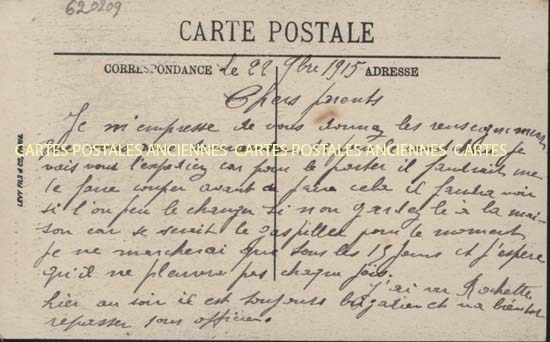 620209
CARTE POSTALE
CORRESPONDANCE le 22 9bre 1915 ADRESSE
Chers parents
Je m'empresse de vous donner les renseignements
CARTES POSTALES ANCIENNES CARTES POSTALES ANCIENNES CARTES POSTALES ANCIENNES
je
vais vous l'expedier car pour le porter il faudrait me
le faire couper avant de faire cela il faudra voir
si l'on peu le changer si non gardez le à la mai
son car se serait le gaspiller pour le moment
je ne marcherai que tous les 15 jours et j'espère
qu'il ne pleuvra pas chaque fois.
J'ai vu Rochette
hier au soir il est toujours brigadier et va bientot
repasser sous officier.
LEVY FILS & Cie